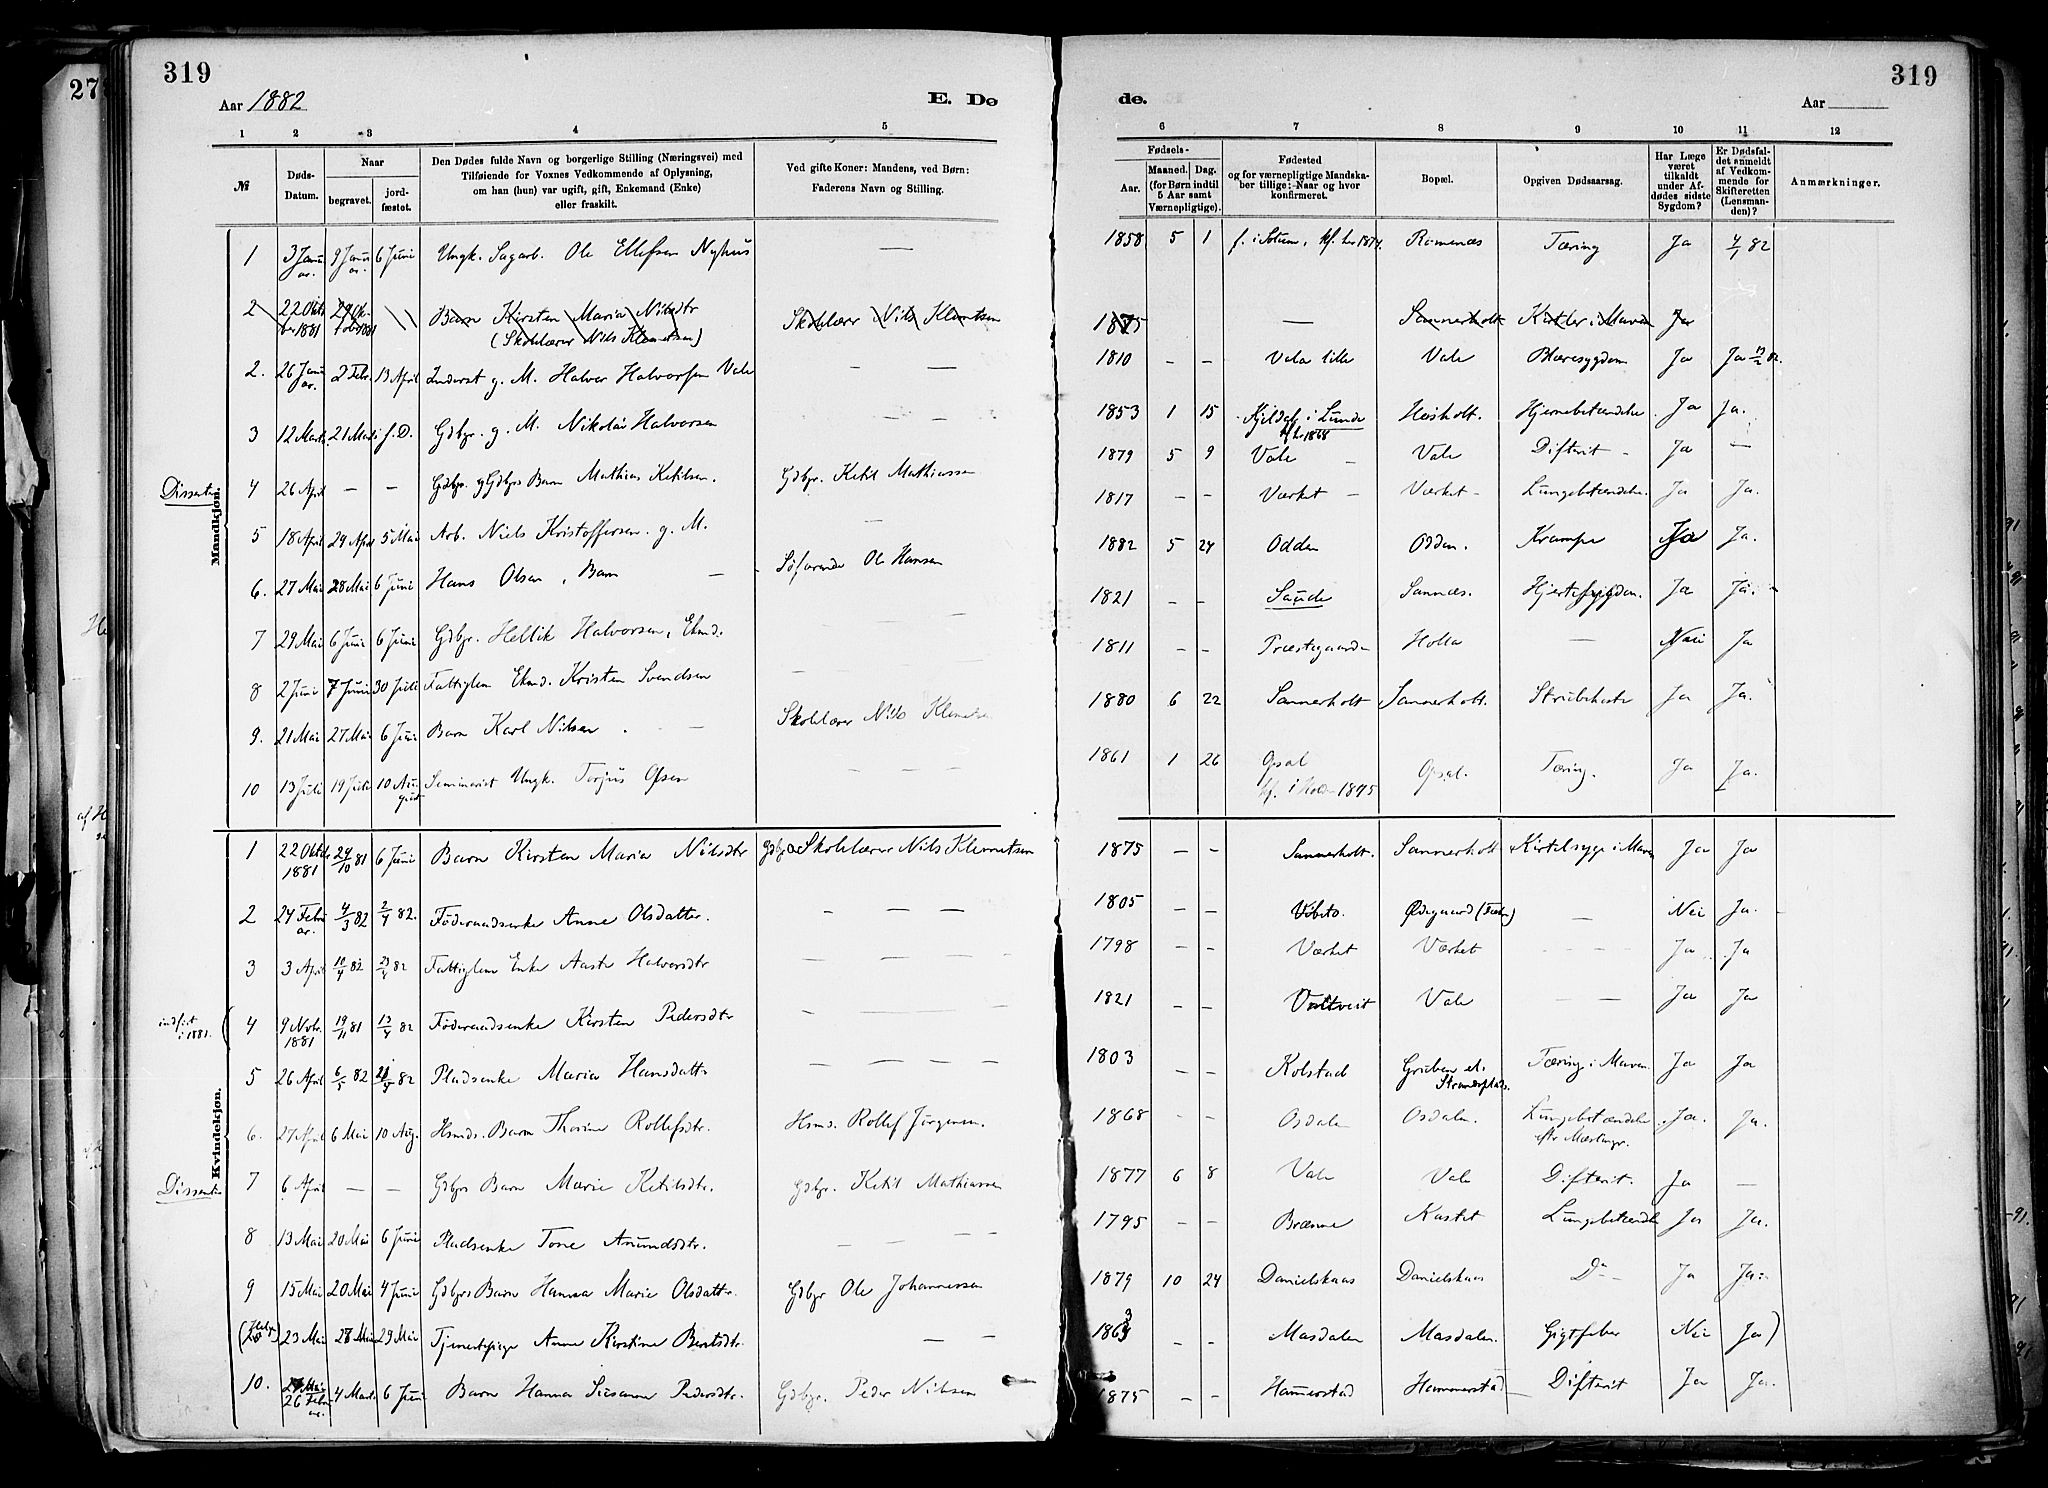 319
Aar 1882
E. Dø
de.
Aar
319
1 2 3 4 5 6 7 8 9 10 11 12
№
Døds-Datum.
Naar
begravet.
jord-fæstet.
Den Dødes fulde Navn og borgerlige Stilling (Næringsvei) med
Tilføiende for Voxnes Vedkommende af Oplysning,
om han (hun) var ugift, gift, Enkemand (Enke)
eller fraskilt.
Ved gifte Koner: Mandens, ved Børn:
Faderens Navn og Stilling.
Fødsels-
Aar.
Maaned.
Dag.
(for Børn indtil
5 Aar samt
Værnepligtige).
Fødested
og for værnepligtige Mandska-
ber tillige: Naar og hvor
konfirmeret.
Bopæl.
Opgiven Dødsaarsag.
Har Læge
været
tilkaldt
under Af-
dødes sidste
Sygdom?
Er Dødsfal-
det anmeldt
af Vedkom-
mende for
Skifteretten
(Lensman-
den)?
Anmærkninger.
Mandkjøn.
1 3 Januar. 9 Januar. 6 Juni Ungk. Sagarb. Ole Ellefsen Nyhus — 1858 5 1 Romenæs Tæring Ja 4/1 82
2 22 Oktober 1881 Barn Kirsten Maria Nilsdtr (Skolelærer Nils Klemetsen) Skolelærer Nils Klemetsen 1875 — Sannerholt Kirtler i Maven Ja
2. 26 Januar. 2 Febr. 13 April Inderst g. M. Halvor Halvorsen Vale — — 1810 — — Vala lille Vale Blæresygdom Ja Ja
3 12 Marts 21 Marts f.D. Gdbgr. g. M. Nikolai Halvorsen — — 1853 1 15 i Lunde 1868 Hæsholt. Hjernebetændelse Ja Ja.
Dissenter 4 26 April — — Gdbgrs Barn Mathias Ketilsen. Gdbgr. Ketil Mathiassen 1879 5 9 Vale Vale Difterit Ja —
5 18 April 29 April 5 Mai Arb. Niels Kristoffersen g. M. — 1817 — — Værket Værket Lungebetændelse. Ja Ja.
6. 27 Mai 28 Mai 6 Juni Hans Olsen, Barn Søfarende Ole Hansen 1882 5 24 Odden Odden. Krampe Ja Ja.
7 29 Mai 6 Juni 6 Juni Gdbgr. Hellik Halvorsen, Ekmd. — — — 1821 — — Saude Sannæs. Hjertesygdom. Ja Ja.
8 2 Juni 7 Juni 30 Juli Fattiglem Ekmd. Kristen Svendsen — — 1811 — — Præstegaarden Holla — Nei Ja
9. 21 Mai 27 Mai 6 Juni Barn Karl Nilsen Skolelærer Nils Klemetsen 1880 6 22 Sannerholt Sannerholt. Strubehoste Ja Ja.
10 13 Juli 19 Juli 10 August Seminarist Ungk. Torjus Olsen — — — 1861 1 26 Opsal 1875 Opsal. Tæring. Ja Ja.
Kvindekjøn.
1 22 Oktbr 1881 24/10 81 6 Juni Barn Kirsten Maria Nilsdtr Gdbgr Skolelærer Nils Klemetsen 1875 — — Sannerholt. Sannerholt Kirtelsyge i Maven Ja Ja
2 24 Februar. 4/3 82 2/4 82. Føderaadsenke Anne Olsdatter. — — — 1805 — — Vibeto. Ødegaard — Nei Ja.
3 3 April 10/4 82 82 Fattiglem Enke Aaste Halvorsdtr — — — 1798 — — Værket Værket — — Ja Ja
indført i 1881. 4 9 Novbr. 1881 19/11 81 13/4 82 Føderaadsenke Kirsten Pedersdtr — — — 1821 — — Valtveit Vale — — Ja Ja
5 26 April 6/5 82 82 Pladsenke Maria Hansdatter — — — 1803 — — Kolstad Gruben Tæring i Maven. Ja Ja
6. 27 April 6 Mai 10 Aug. Hsmds. Barn Thorine Rollefsdtr. Hsmd. Rollef Jørgensen. 1868 — — Osdalen Osdalen. Lungebetændelse efter Mæslinger. Ja. Ja.
Dissenter 7 6 April — — Gdbgrs Barn Marie Ketilsdtr. Gdbgr. Ketil Mathiassen 1877 6 8 Vale Vale Difterit. Ja —
8 13 Mai 20 Mai 6 Juni Pladsenke Tone Amundsdtr. — — — 1795 — — Brænne Kastet Lungebetændelse Ja Ja.
9 15 Mai 20 Mai 4 Juni Gdbgrs Barn Hanna Marie Olsdatter. Gdbgr Ole Johannessen 1879 10 24 Danielskaas Danielskaas Do Ja Ja
23 Mai 28 Mai 29 Mai Tjenestepige Anne Kirstine Berntsdtr. — — 1863 — — Masdalen Masdalen. Gigtfeber Nei Ja)
10. 26 Februar. 4 Marts 6 Juni Barn Hanna Susanne Pedersdtr. Gdbgr. Peder Nilsen 1875 — — Hammerstad Hammerstad Difterit Ja Ja.